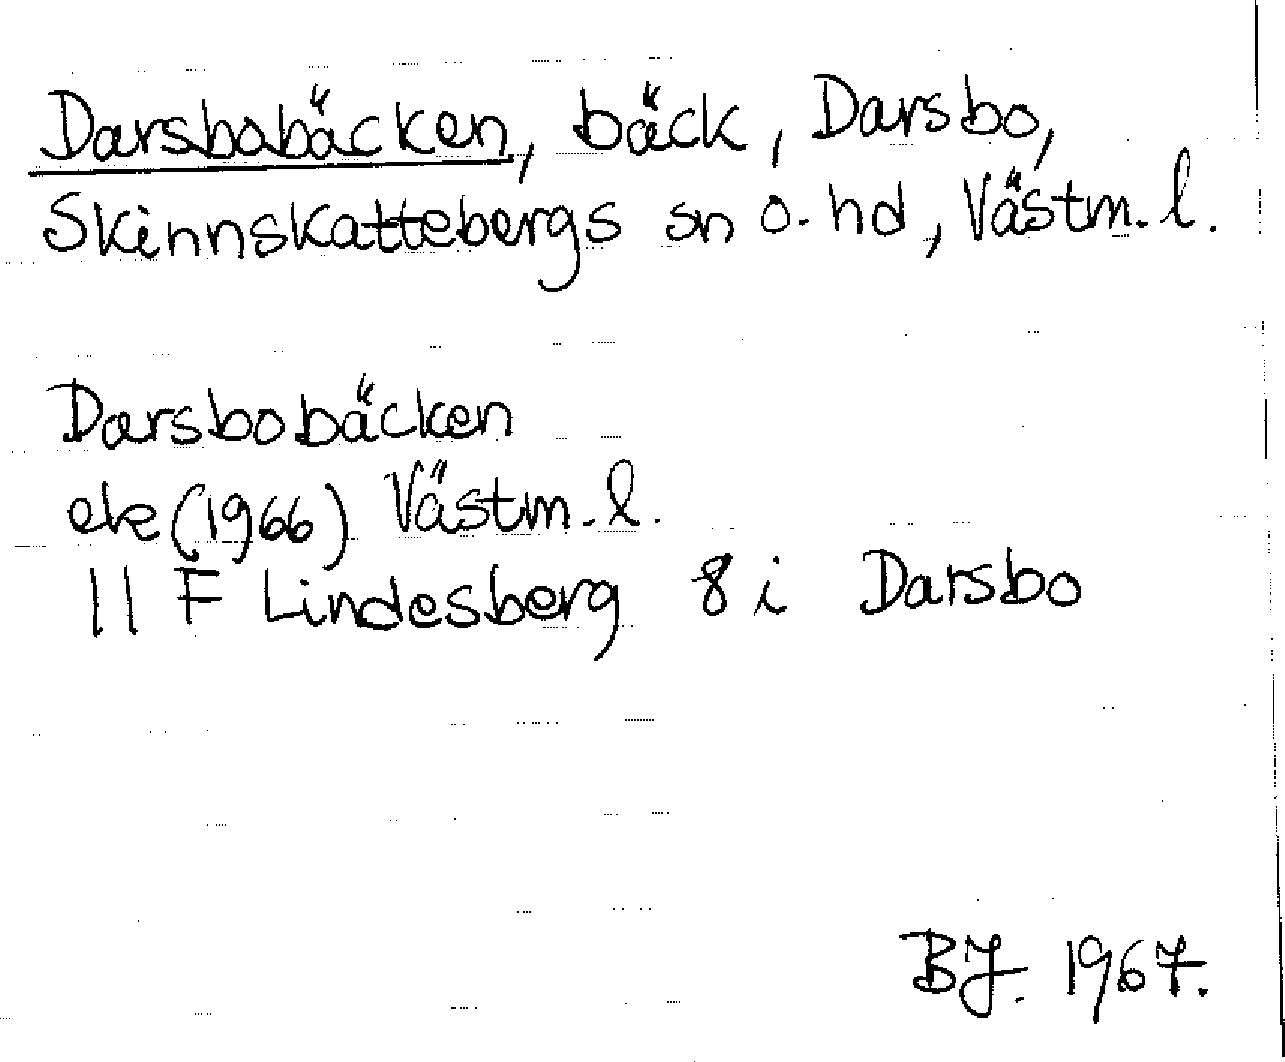 Darsbobäcken, bäck, Darsbo,
Skinnskattebergs sn o. hd, Västm. l.
Darsbobäcken
ek (1966) Västm. l.
11 F Lindesberg 8 i Darsbo
BJ. 1967.